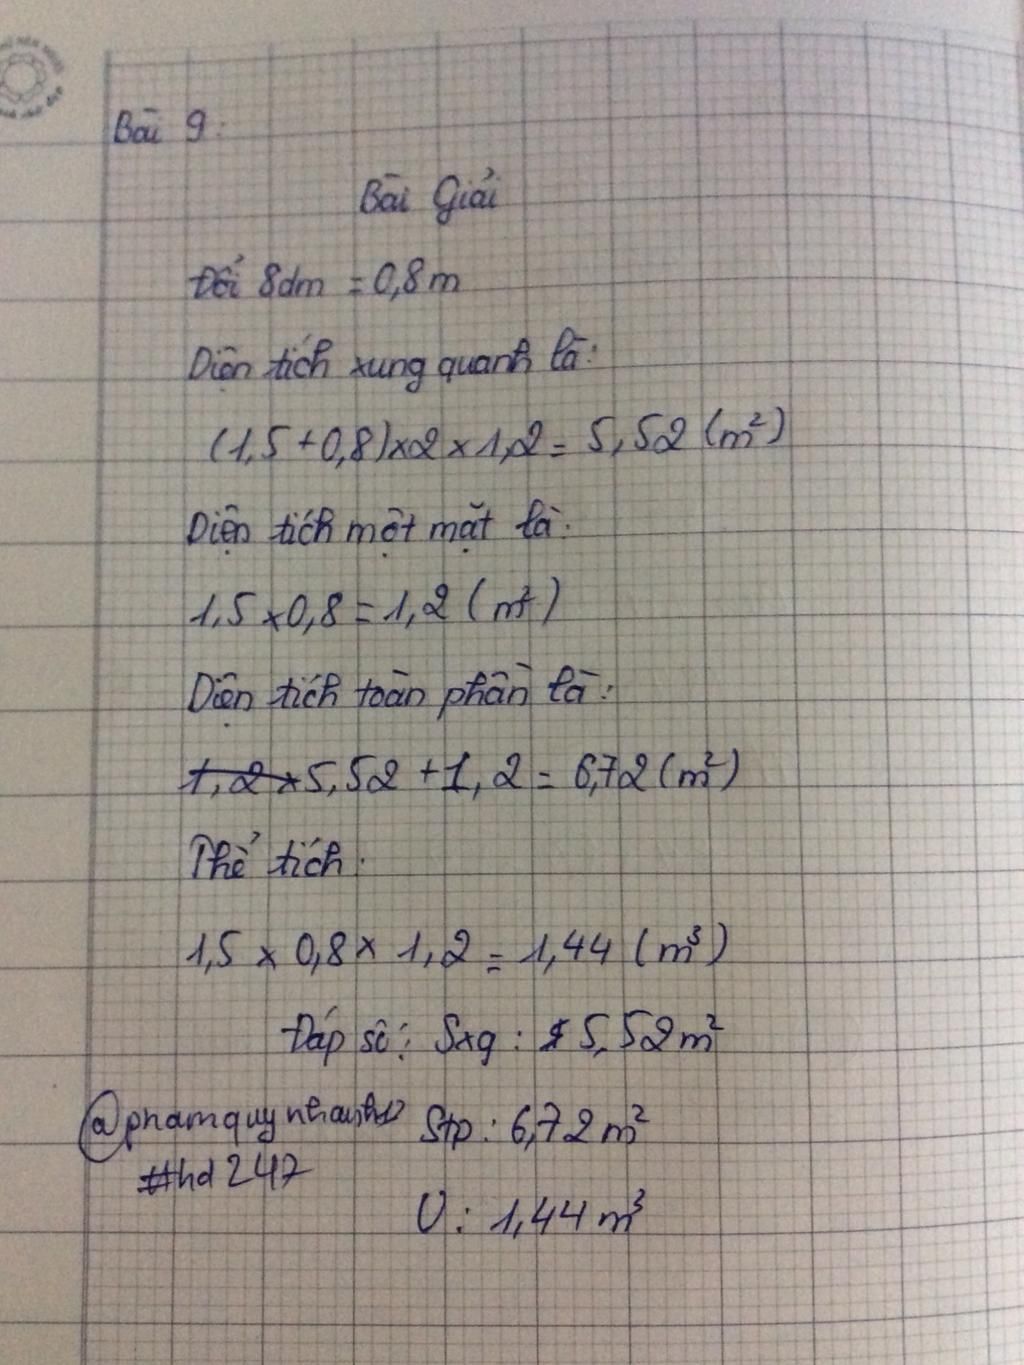 Bài 9:
Bài Giải
Đổi 8dm = 0,8m
Diện tích xung quanh là:
(1,5 + 0,8) x 2 x 1,2 = 5,52 (m²)
Diện tích một mặt là:
1,5 x 0,8 = 1,2 (m²)
Diện tích toàn phần là:
5,52 + 1,2 = 6,72 (m²)
Thể tích:
1,5 x 0,8 x 1,2 = 1,44 (m³)
Đáp số: Sxq: 5,52m²
Stp: 6,72m²
#hd247
V: 1,44m³